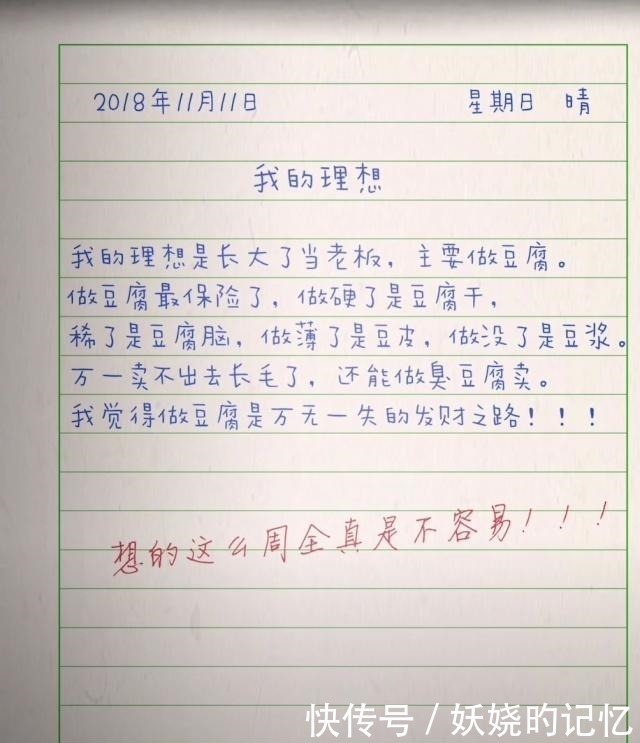 2018年11月11日 星期日 晴
我的理想
我的理想是长大了当老板，主要做豆腐。
做豆腐最保险了，做硬了是豆腐干，
稀了是豆腐脑，做薄了是豆皮，做没了是豆浆。
万一卖不出去长毛了，还能做臭豆腐卖。
我觉得做豆腐是万无一失的发财之路！！！
想的这么周全真是不容易！！！
快传号 / 妖娆旳记忆